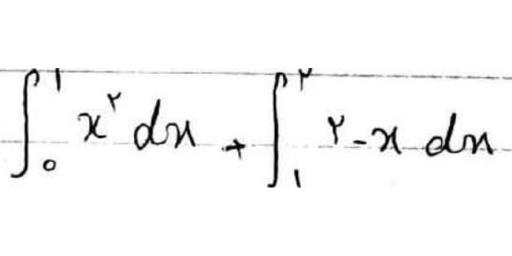 ∫₀^۱ x^۲ dx + ∫₁^۲ ۲-x dx